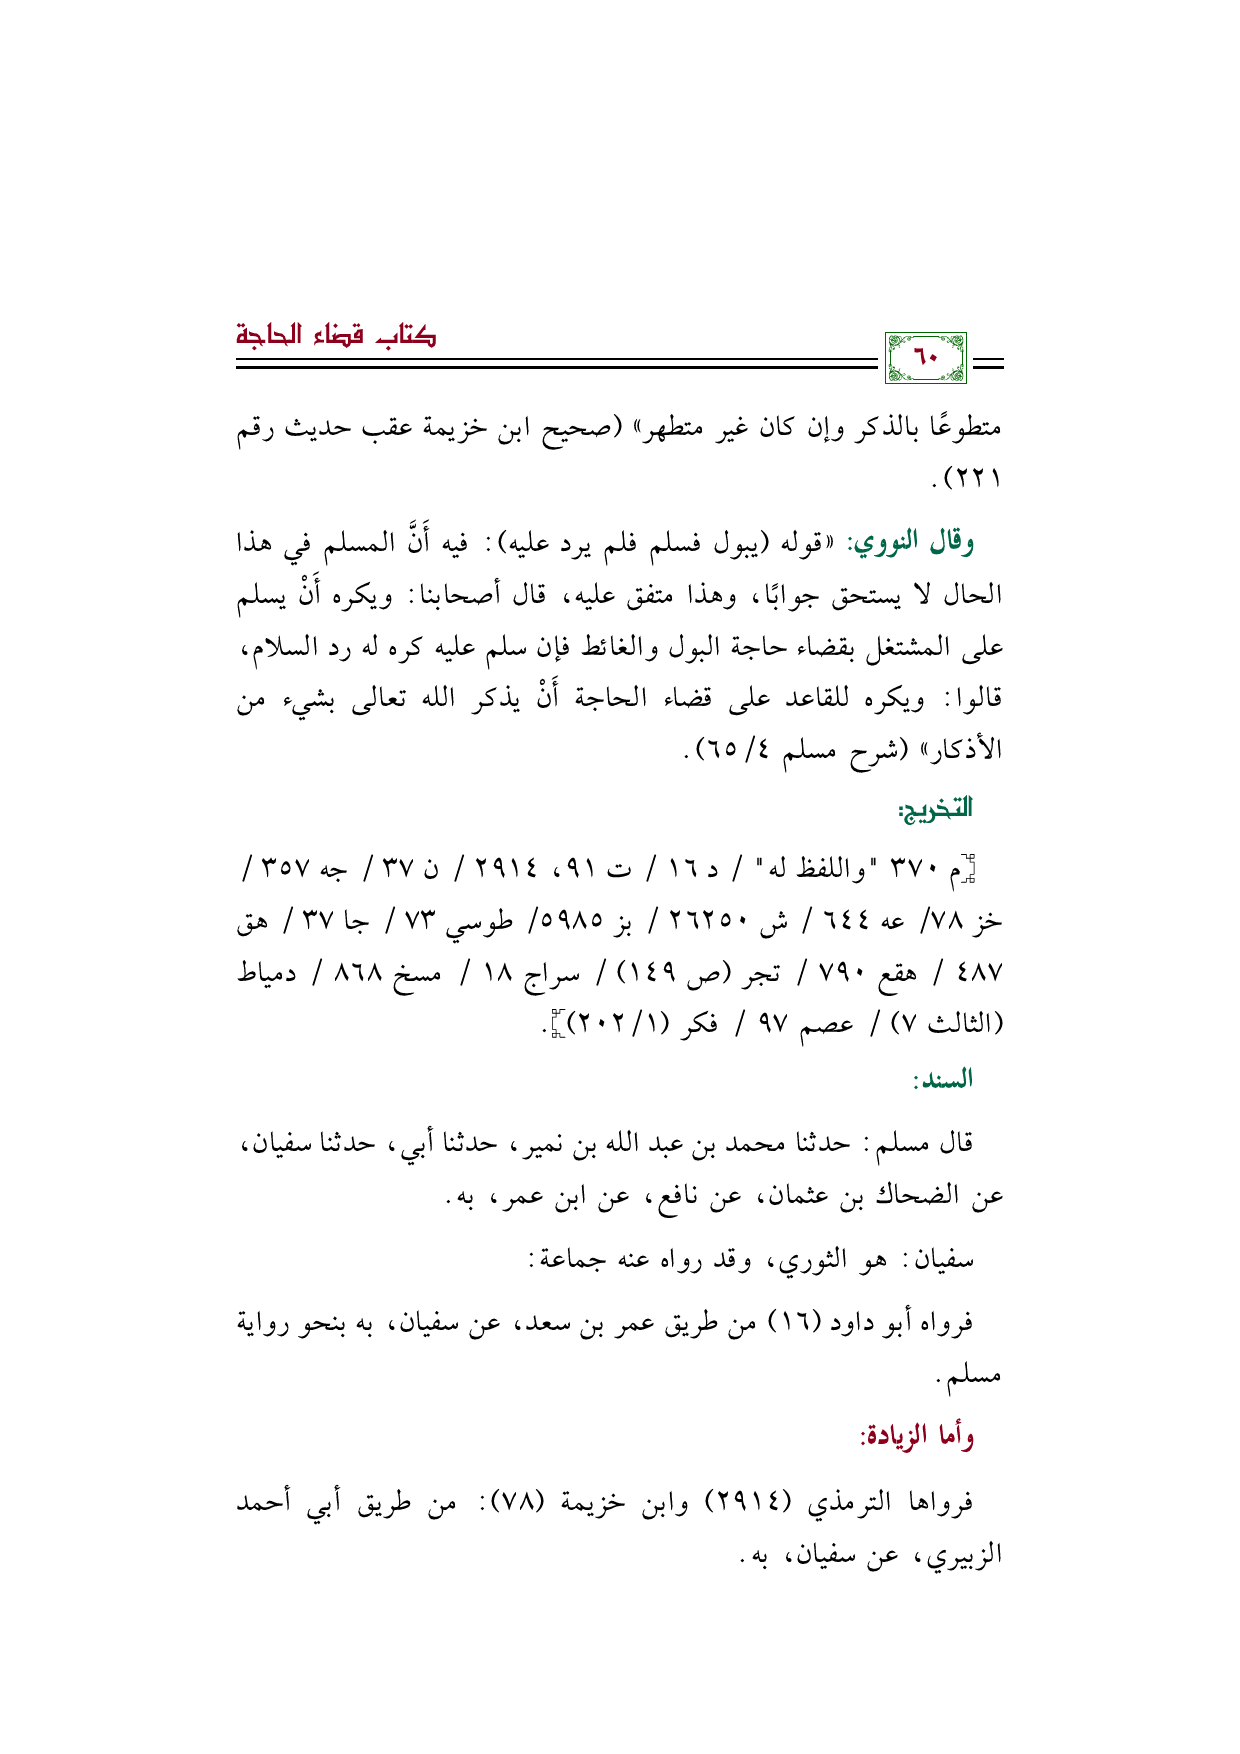 كتاب قضاء الحاجة
٦٠
متطوعًا بالذكر وإن كان غير متطهر» (صحيح ابن خزيمة عقب حديث رقم
٢٢١).
وقال النووي: «قوله (يبول فسلم فلم يرد عليه): فيه أَنَّ المسلم في هذا
الحال لا يستحق جوابًا، وهذا متفق عليه، قال أصحابنا: ويكره أَنْ يسلم
على المشتغل بقضاء حاجة البول والغائط فإن سلم عليه كره له رد السلام،
قالوا: ويكره للقاعد على قضاء الحاجة أَنْ يذكر الله تعالى بشيء من
الأذكار» (شرح مسلم ٤/ ٦٥).
التخريج:
[م ٣٧٠ "واللفظ له" / د ١٦ / ت ٩١، ٢٩١٤ / ن ٣٧ / جه ٣٥٧ /
خز ٧٨/ عه ٦٤٤ / ش ٢٦٢٥٠ / بز ٥٩٨٥/ طوسي ٧٣ / جا ٣٧ / هق
٤٨٧ / هقع ٧٩٠ / تجر (ص ١٤٩) / سراج ١٨ / مسخ ٨٦٨ / دمياط
(الثالث ٧) / عصم ٩٧ / فكر (١/ ٢٠٢)].
السند:
قال مسلم: حدثنا محمد بن عبد الله بن نمير، حدثنا أبي، حدثنا سفيان،
عن الضحاك بن عثمان، عن نافع، عن ابن عمر، به.
سفيان: هو الثوري، وقد رواه عنه جماعة:
فرواه أبو داود (١٦) من طريق عمر بن سعد، عن سفيان، به بنحو رواية
مسلم.
وأما الزيادة:
فرواها الترمذي (٢٩١٤) وابن خزيمة (٧٨): من طريق أبي أحمد
الزبيري، عن سفيان، به.